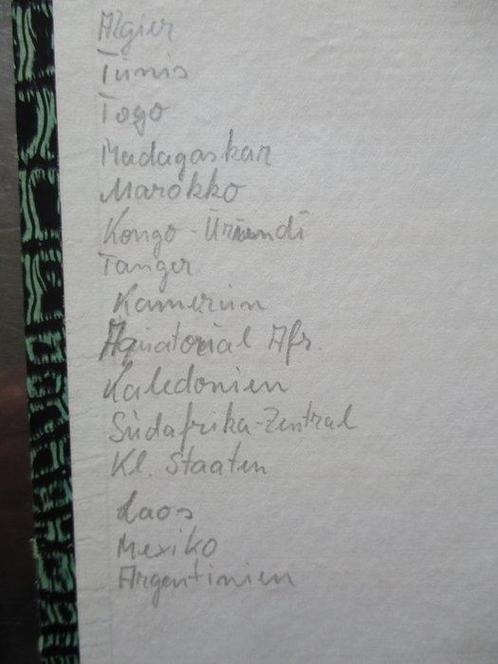 Algier
Tunis
Togo
Madagaskar
Marokko
Kongo-Urundi
Tanger
Kamerun
Äquatorial Afr.
Kaledonien
Südafrika-Zentral
Kl. Staaten
Laos
Mexiko
Argentinien